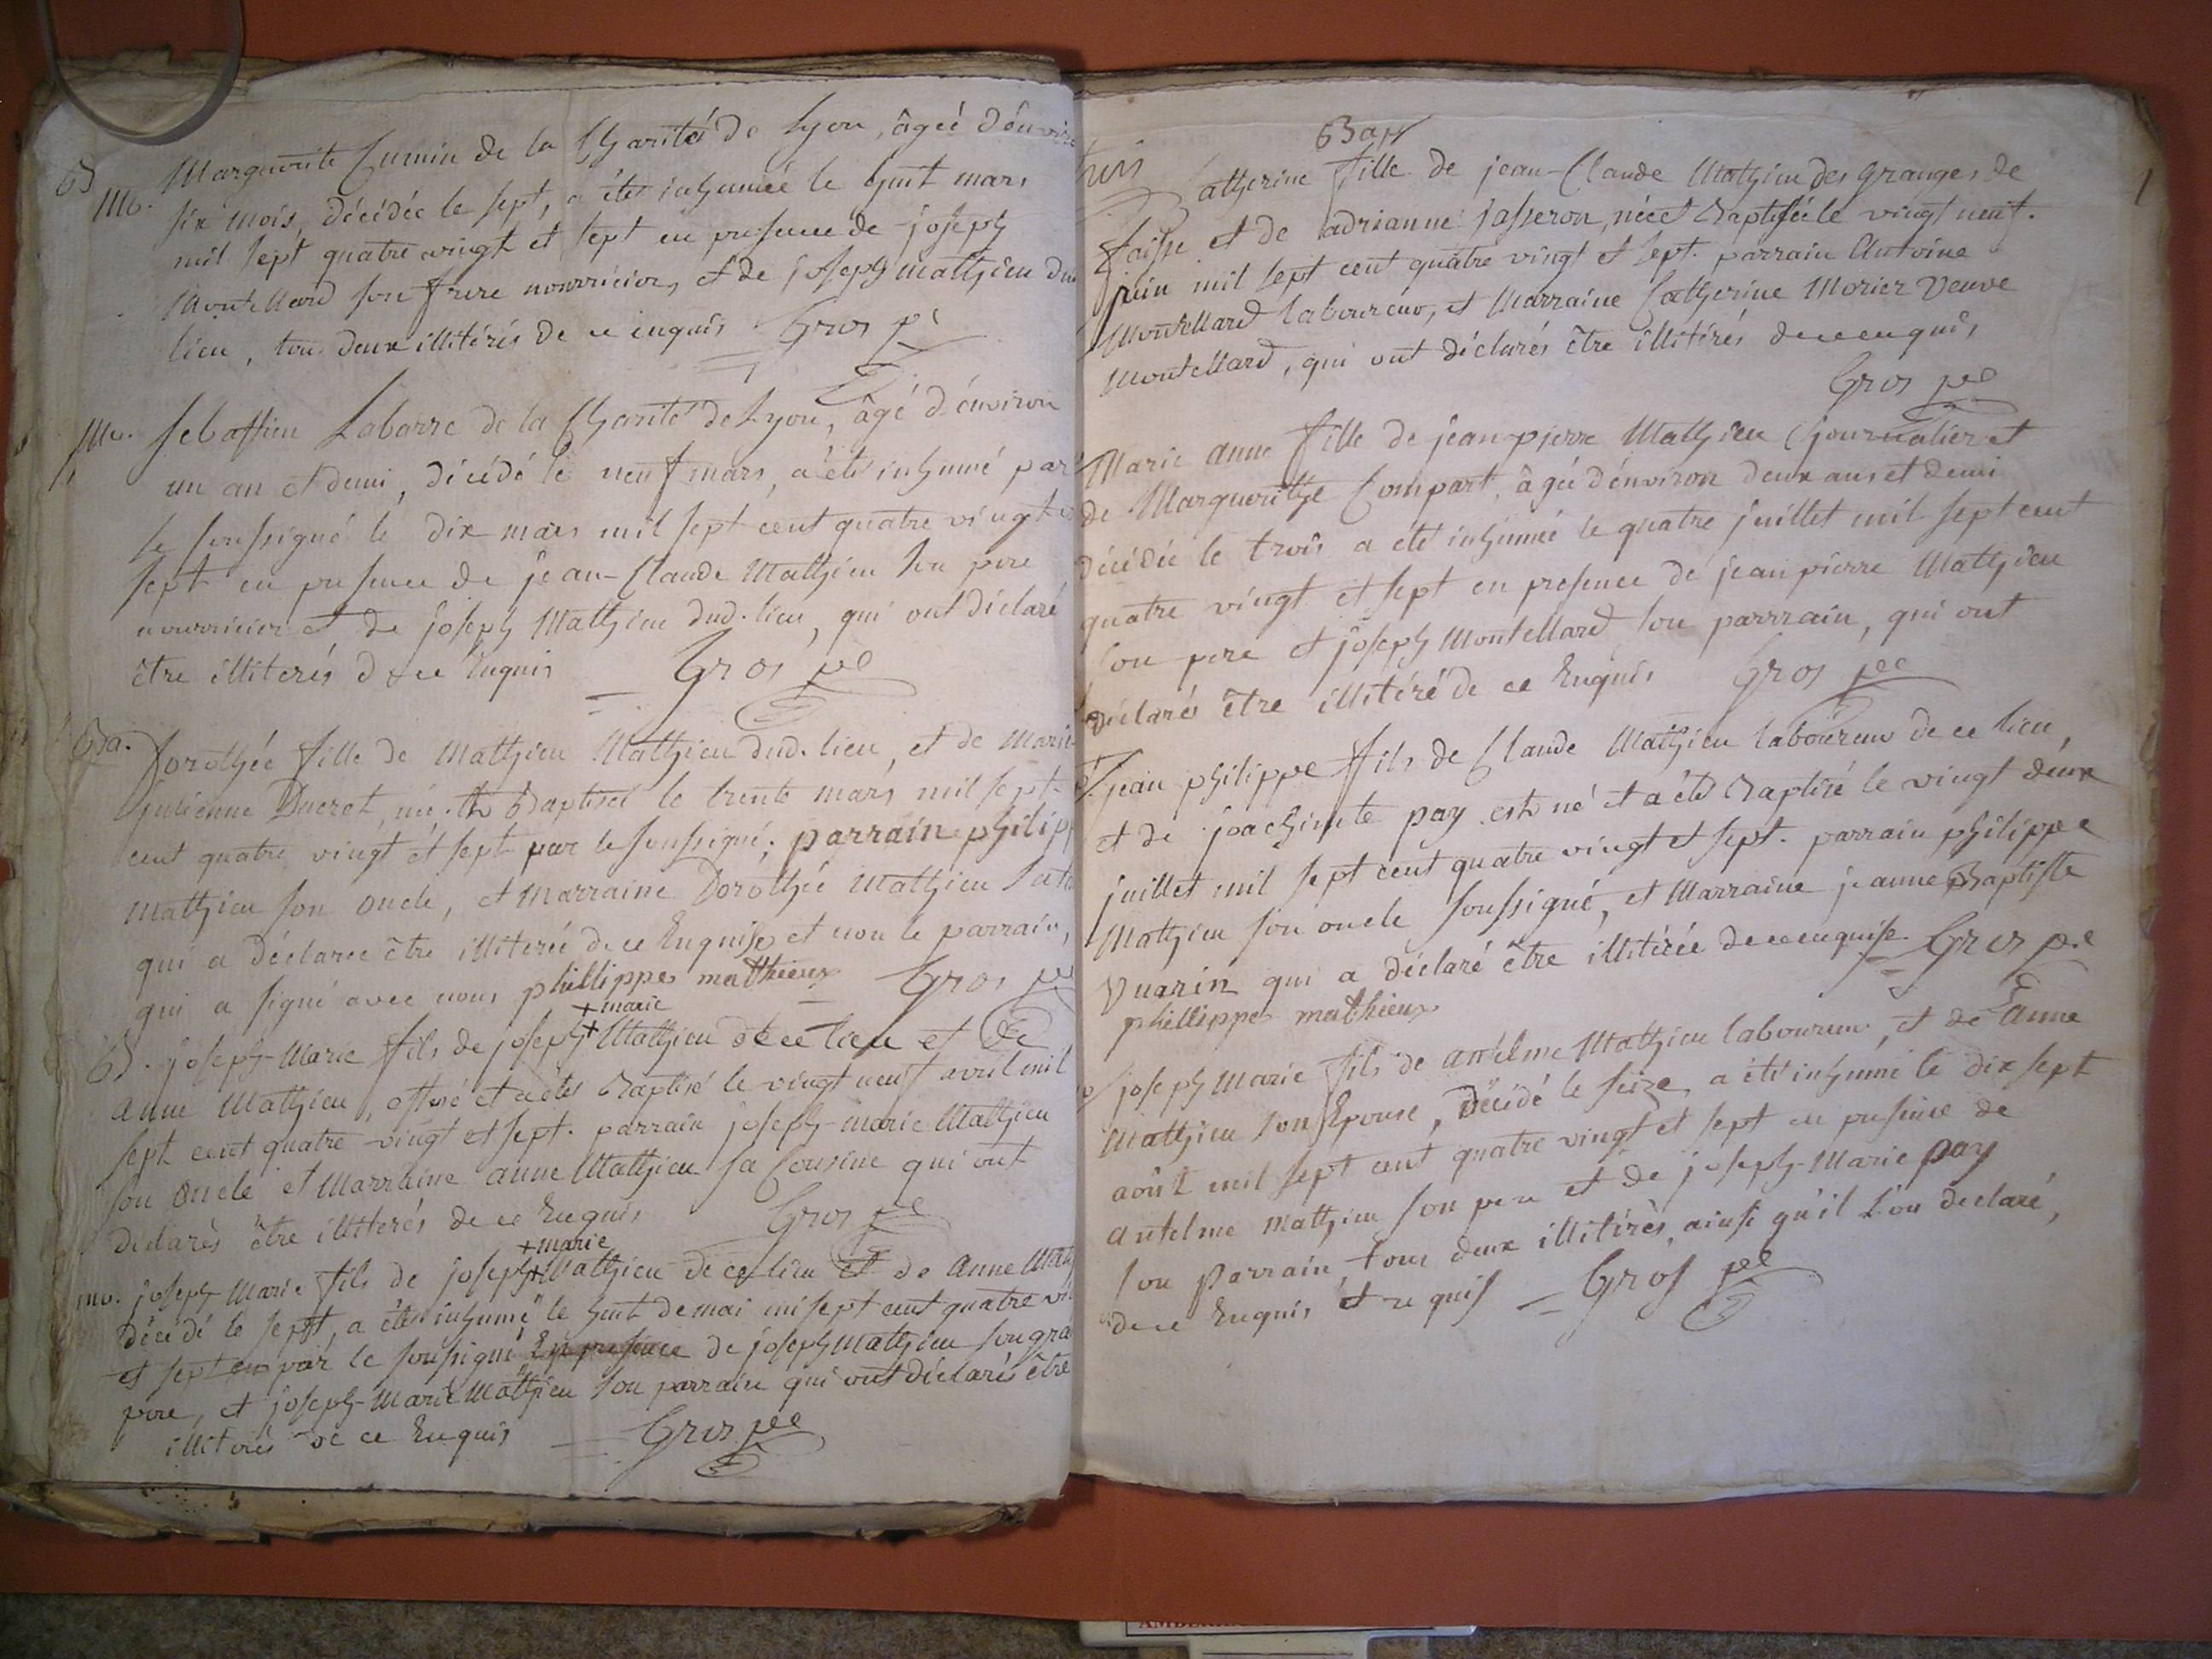 B
Mo. Marguerite Cumin de la Charité de Lyon, âgée d'envir
six mois, décédée le sept, a étés inhumée le huit mars
mil sept quatre vingt et sept en presence de joseph
Montellard son frere nourricier, et de joseph mathieu du
lieu, tous deux illitérés de ce enquis Gros p.
Mo. Sebastien Labarre de la Charité de Lyon, âgé d'environ
un an et demi, décédé le neuf mars, a été inhumé par
le soussigné le dix mars mil sept cent quatre vingt et
sept en presence de jean-Claude Mathieu son pere
nourricier et de joseph Mathieu dud. lieu, qui ont déclaré
être illiterés de ce Enquis Gros pe
Ba. Dorothée fille de Mathieu Mathieu dud. lieu, et de Marie
julienne Ducret, née et Baptisée le trente mars mil sept
cent quatre vingt et sept par le soussigné; parrain philip
Mathieu son oncle, et marraine Dorothée Mathieu sa
qui a déclarée être illiterée de ce Enquise et non le parrain,
qui a signé avec nous phillippe matthieux Gros pe
+ marie
B. joseph-Marie fils de joseph + Mathieu de ce lieu et de
anne Mathieu, est né et a étés Baptisé le vingt neuf avril mil
sept cent quatre vingt et sept. parrain joseph-marie Mathieu
son oncle et Marraine anne Mathieu sa Cousine qui ont
declarés être illiterés de ce Enquis Gros pe
+ marie
mo. joseph-Marie fils de joseph + Mathieu de ce lieu et de Anne Mat
décédé le sept, a étés inhumé le huit de mai mil sept cent quatre vi
et sept par le soussigné de joseph Mathieu son gra
pere, et joseph-Marie Mathieu son parrain qui ont déclarés être
illiterés de ce Enquis Gros pe
Bap
Catherine fille de jean-Claude Mathieu des granges de
faisse et de adrianne jasseron, née et Baptisée le vingt neuf.
juin mil sept cent quatre vingt et sept. parrain Antoine
Montellard laboureur, et Marraine Catherine Morier veuve
Montellard, qui ont déclarés être illitérés de ce enquis,
Gros pe
Marie anne fille de jean-pierre Mathieu journalier et
de Margueritte Compart, âgée d'environ deux ans et demi
décédée le trois a été inhumée le quatre juillet mil sept cent
quatre vingt et sept en presence de jean pierre Mathieu
son pere et joseph Montellard son parrrain, qui ont
déclarés être illitéré de ce Enquis Gros pe
jean philippe fils de Claude Mathieu laboureur de ce lieu,
et de joachimte pay est né et a été Baptisé le vingt deux
juillet mil sept cent quatre vingt et sept. parrain philippe
Mathieu son oncle soussigné, et Marraine jeanne Baptiste
Vuarin qui a déclaré être illitérée de ce enquise. Gros pe
phillippe mathieux
joseph Marie fils de antelme Mathieu laboureur, et de Anne
Mathieu son Epouse, Décédé le seize a été inhumé le dix sept
août mil sept cent quatre vingt et sept en presence de
Antelme mathieu son pere et de joseph-Marie pay
son parrain, tous deux illitérés, ainsi qu'il l'on declaré,
de ce Enquis et requis Gros pe